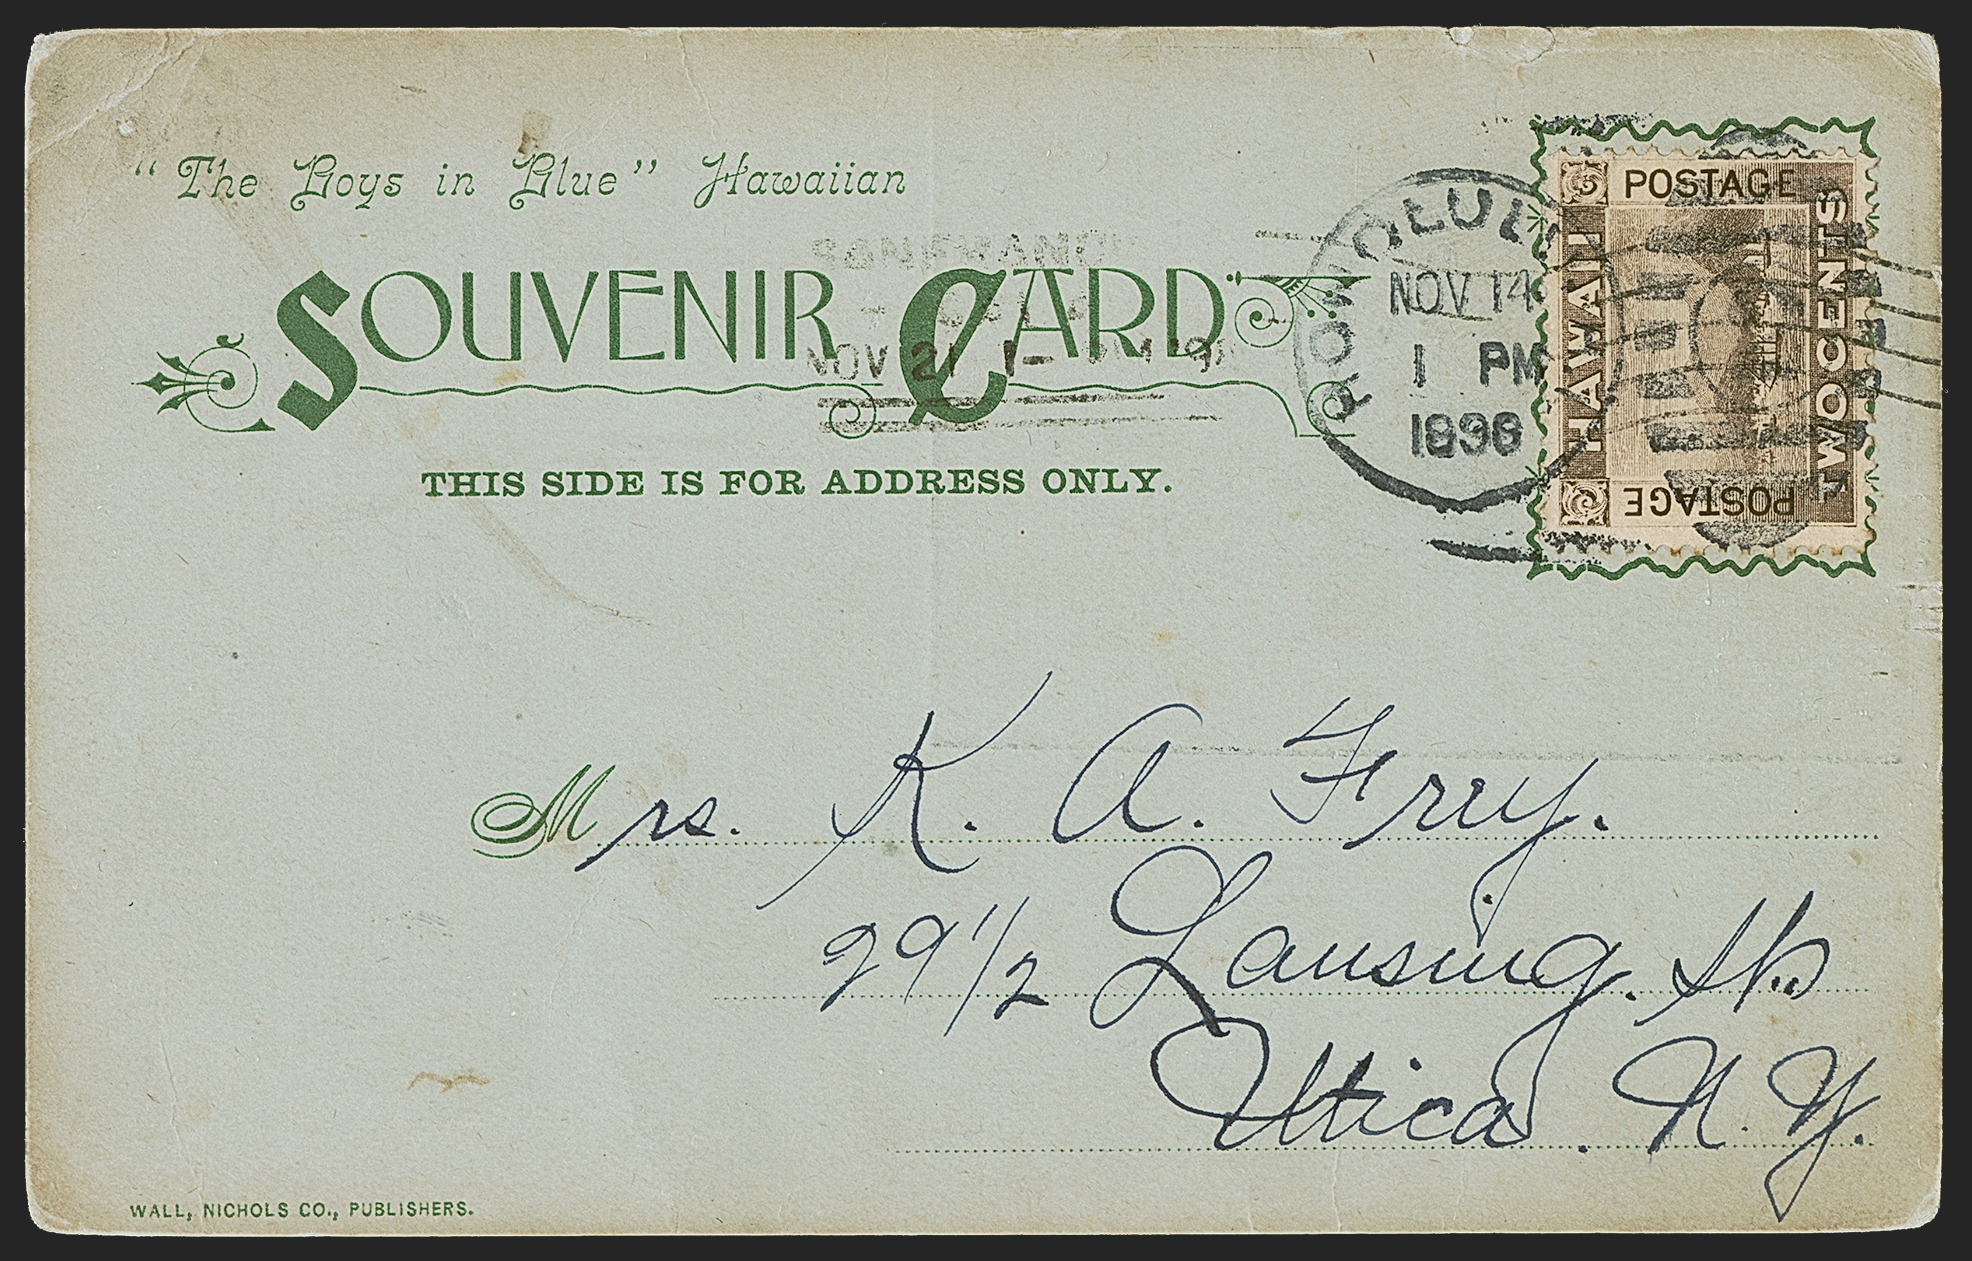 "The Boys in Blue" Hawaiian
SOUVENIR CARD
THIS SIDE IS FOR ADDRESS ONLY.
NOV 21 1-
HONOLULU
NOV 14
1 PM
1898
POSTAGE
HAWAII
TWO CENTS
POSTAGE
Mrs. K. A. Frey.
29 1/2 Lansing. St.
Utica. N. Y.
WALL, NICHOLS CO., PUBLISHERS.